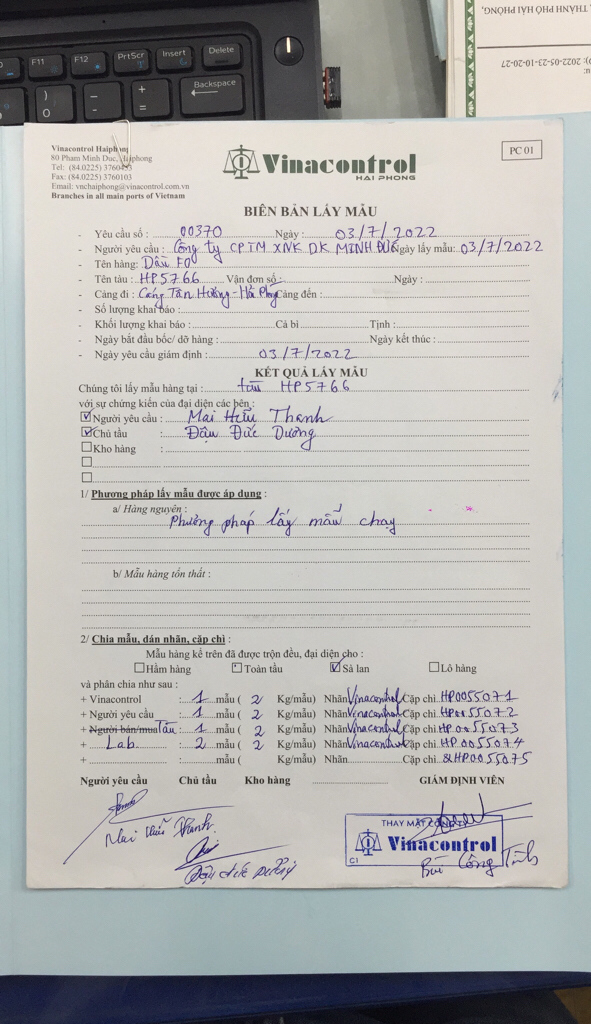 F11
F12
PrtScr
Insert
Delete
Backspace
, THÀNH PHỐ HẢI PHÒNG,
): 2022-05-23-10-20-27
Vinacontrol Haiphong
80 Pham Minh Duc, Haiphong
Tel: (84.0225) 3760453
Fax: (84.0225) 3760103
Email: vnchaiphong@vinacontrol.com.vn
Branches in all main ports of Vietnam
Vinacontrol
HAI PHONG
PC 01
BIÊN BẢN LẤY MẪU
- Yêu cầu số : 00370 Ngày : 03/7/2022
- Người yêu cầu : Công ty CPTM XNK DK MINH ĐỨC Ngày lấy mẫu: 03/7/2022
- Tên hàng: Dầu FO
- Tên tàu : HP5766 Vận đơn số : Ngày :
- Cảng đi : Cảng Tân Hương - Hải Phòng Cảng đến :
- Số lượng khai báo :
- Khối lượng khai báo : Cả bì Tịnh :
- Ngày bắt đầu bốc/ dỡ hàng : Ngày kết thúc :
- Ngày yêu cầu giám định : 03/7/2022
KẾT QUẢ LẤY MẪU
Chúng tôi lấy mẫu hàng tại : tàu HP5766
với sự chứng kiến của đại diện các bên :
Người yêu cầu : Mai Hữu Thanh
Chủ tầu : Đậu Đức Dương
Kho hàng :
1/ Phương pháp lấy mẫu được áp dụng :
a/ Hàng nguyên :
Phương pháp lấy mẫu chạy
b/ Mẫu hàng tổn thất :
2/ Chia mẫu, dán nhãn, cặp chì :
Mẫu hàng kể trên đã được trộn đều, đại diện cho :
Hầm hàng Toàn tầu Sà lan Lô hàng
và phân chia như sau :
+ Vinacontrol : 1 mẫu ( 2 Kg/mẫu) Nhãn Vinacontrol Cặp chì HP0055071
+ Người yêu cầu : 1 mẫu ( 2 Kg/mẫu) Nhãn Vinacontrol Cặp chì HP0055072
+ Người bán/mua Tàu : 1 mẫu ( 2 Kg/mẫu) Nhãn Vinacontrol Cặp chì HP0055073
+ Lab. : 2 mẫu ( 2 Kg/mẫu) Nhãn Vinacontrol Cặp chì HP0055074
+ : mẫu ( Kg/mẫu) Nhãn Cặp chì &HP0055075
Người yêu cầu Chủ tầu Kho hàng GIÁM ĐỊNH VIÊN
Mai Hữu Thanh.
Đậu Đức Dương
THAY MẶT CÔNG TY
Vinacontrol
C1
Bùi Công Tình